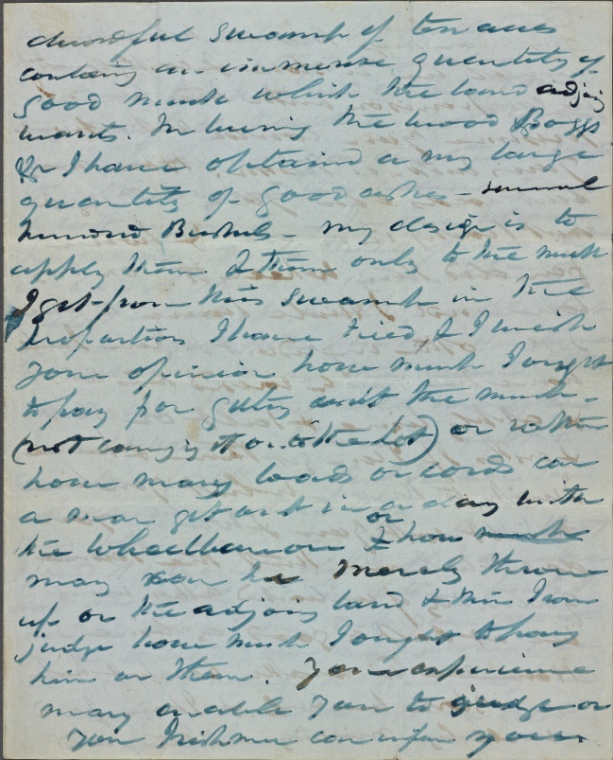 swamp of ten acres
containing an immense quantity of
good muck which the land adjoing
wants. In burning the wood Boggs
&c I have obtained a very large
quantity of good ashes - several
hundred Bushels - my design is to
apply them & them only to the muck
I get from this swamp in the
proportions I have tried, & I wish
your opinion how much I ought
to pay for getting out the muck -
(not carrying it on to the lot) or rather
how many loads or cords can
a man get out in a day with
the Wheelbarrow or how much
may he merely throw
up on the adjoing land & then I can
judge how much I ought to pay
him or them. Your experience
may enable you to judge or
your Irishmen can inform you.